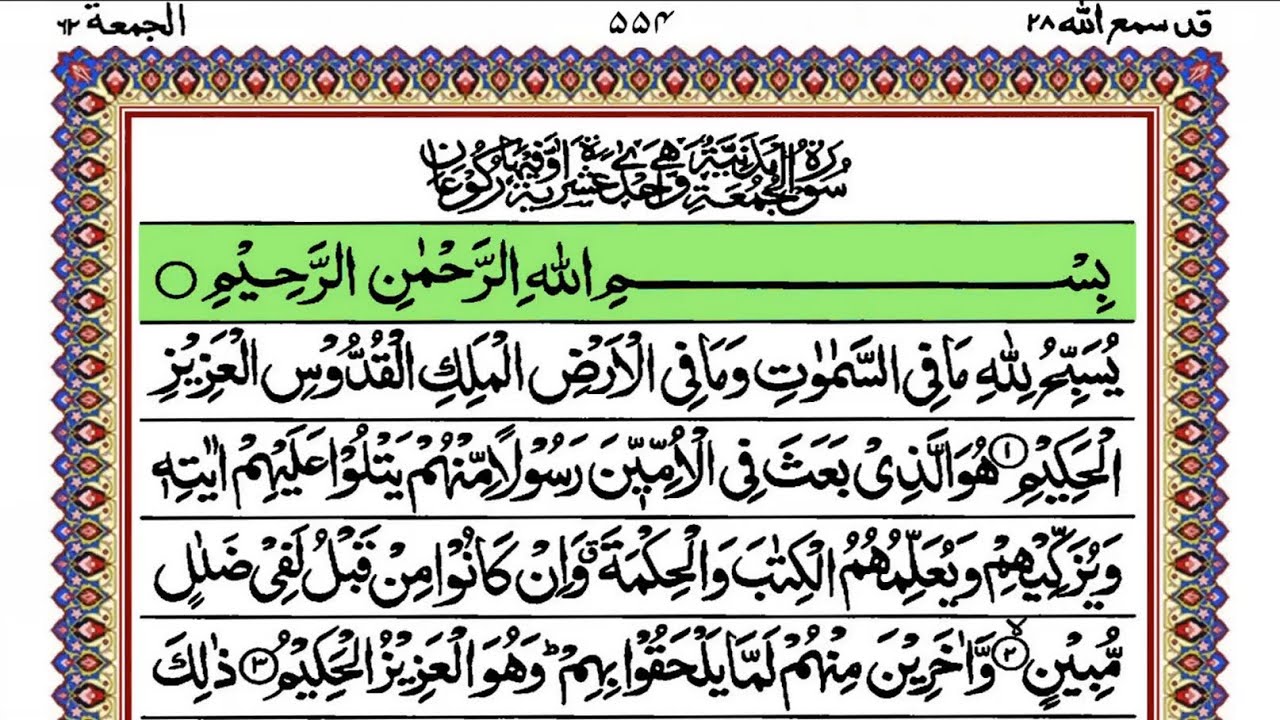 قد سمع الله ۲۸ ۵۵۴ الجمعة ۶۲
سُوْرَةُ الْجُمُعَةِ مَدَنِيَّةٌ وَّهِيَ اِحْدٰى عَشْرَةَ اٰيَةً وَّفِيْهَا رُكُوْعَانِ
بِسْمِ اللهِ الرَّحْمٰنِ الرَّحِيْمِ ○
يُسَبِّحُ لِلّٰهِ مَا فِى السَّمٰوٰتِ وَمَا فِى الْاَرْضِ الْمَلِكِ الْقُدُّوْسِ الْعَزِيْزِ
الْحَكِيْمِ ۱ هُوَ الَّذِىْ بَعَثَ فِى الْاُمِّيّٖنَ رَسُوْلًا مِّنْهُمْ يَتْلُوْا عَلَيْهِمْ اٰيٰتِهٖ
وَيُزَكِّيْهِمْ وَيُعَلِّمُهُمُ الْكِتٰبَ وَالْحِكْمَةَ ۗ وَاِنْ كَانُوْا مِنْ قَبْلُ لَفِىْ ضَلٰلٍ
مُّبِيْنٍ ۲ وَّاٰخَرِيْنَ مِنْهُمْ لَمَّا يَلْحَقُوْا بِهِمْ ؕ وَهُوَ الْعَزِيْزُ الْحَكِيْمُ ۳ ذٰلِكَ